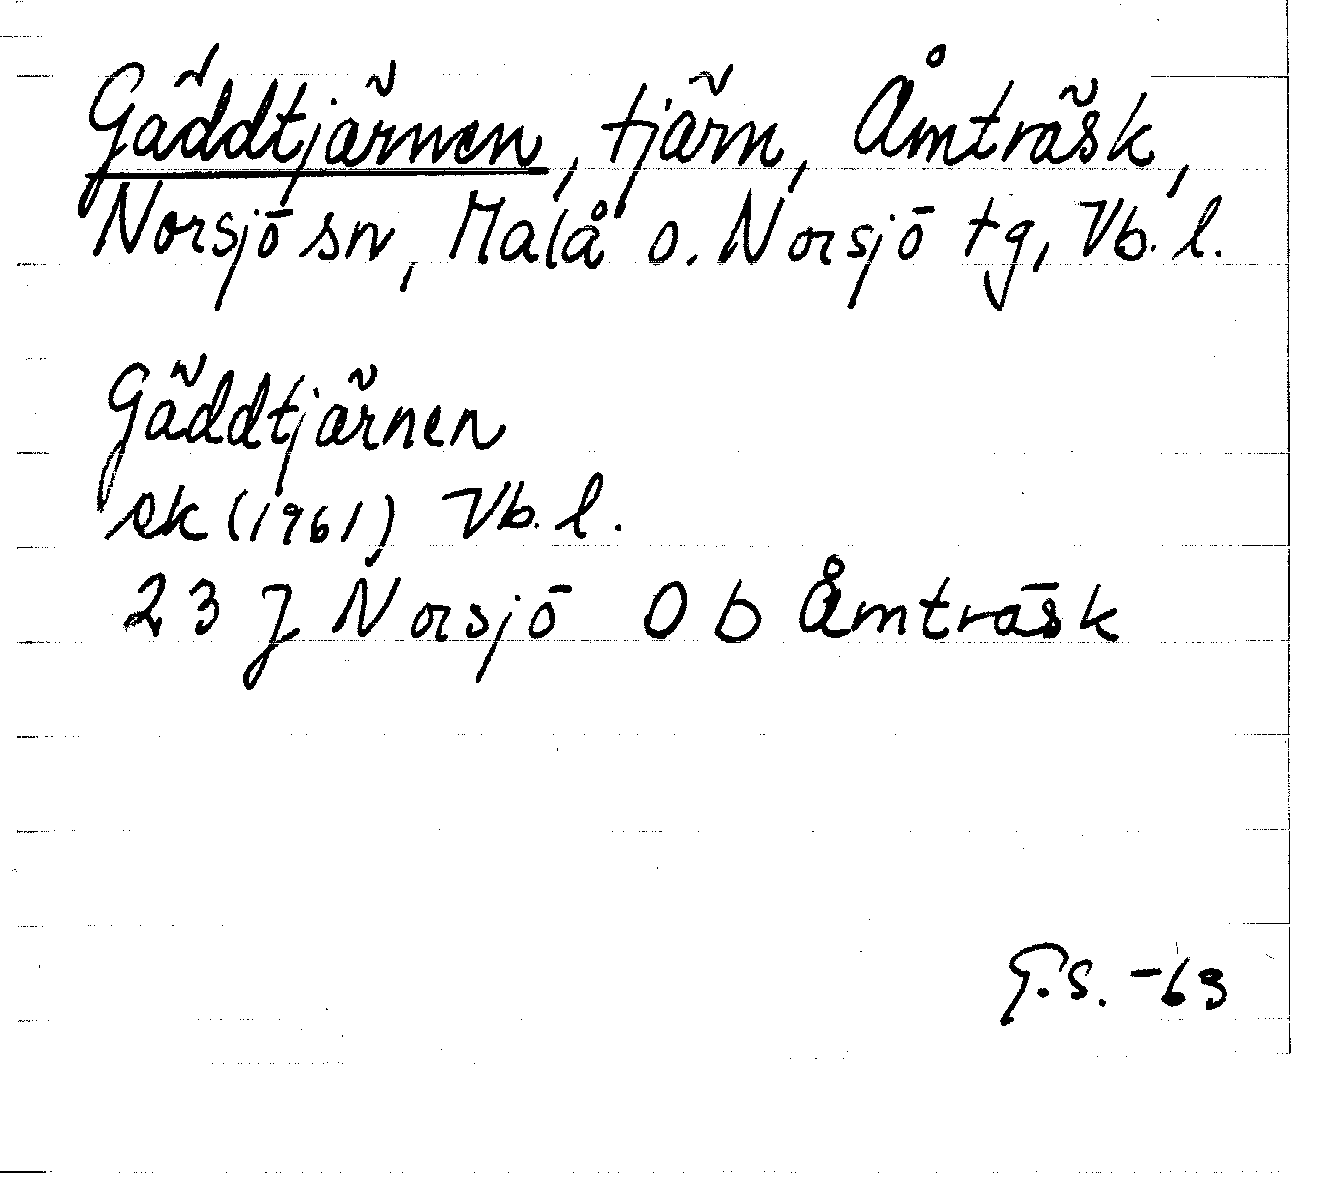 Gäddtjärnen, tjärn, Åmträsk,
Norsjö sn, Malå o. Norsjö tg, Vb. l.
Gäddtjärnen
ek (1961) Vb. l.
23 J Norsjö 0 b Åmträsk
G.S. -63